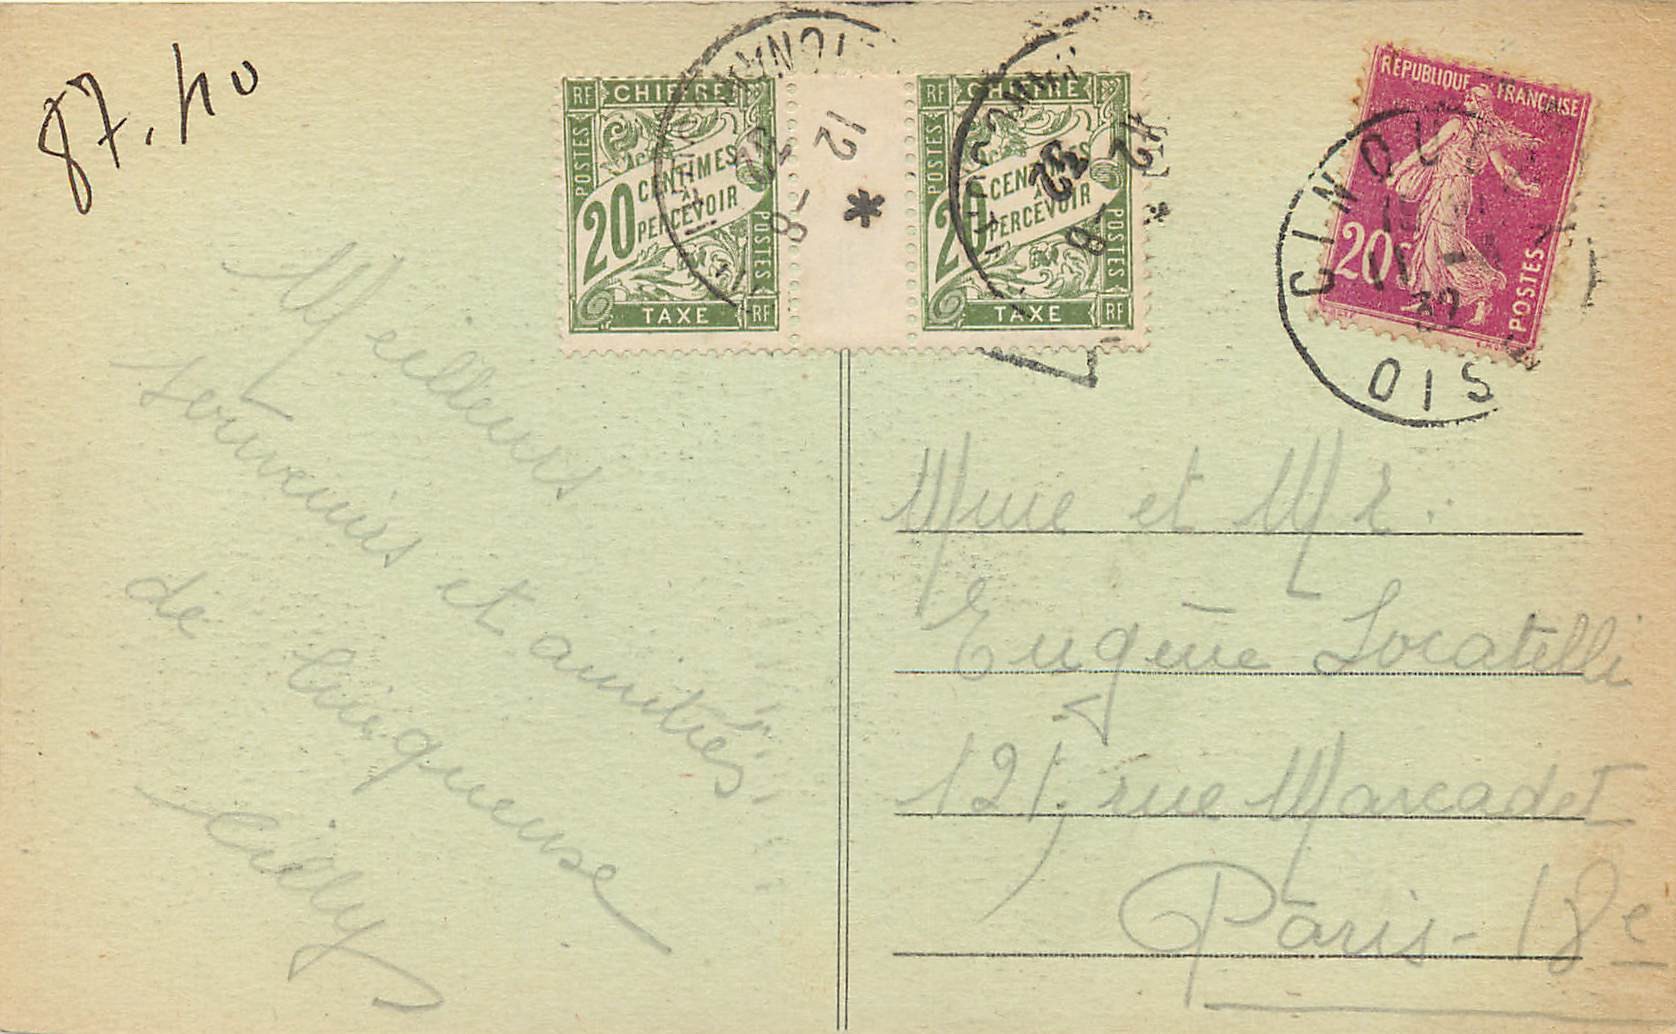 87.40
RF CHIFFRE
POSTES
20 CENTIMES
À
PERCEVOIR
POSTES
TAXE RF
12
*
32
-8
RF CHIFFRE
POSTES
20 CENTIMES
À
PERCEVOIR
POSTES
TAXE RF
12 *
32
-8
REPUBLIQUE FRANÇAISE
20c
POSTES
32
OIS
Meilleurs
souvenirs et amitiés
de Cinqueuse
Cilly
Mme et Mr.
Eugène Locatelli
121, rue Marcadet
Paris - 18e